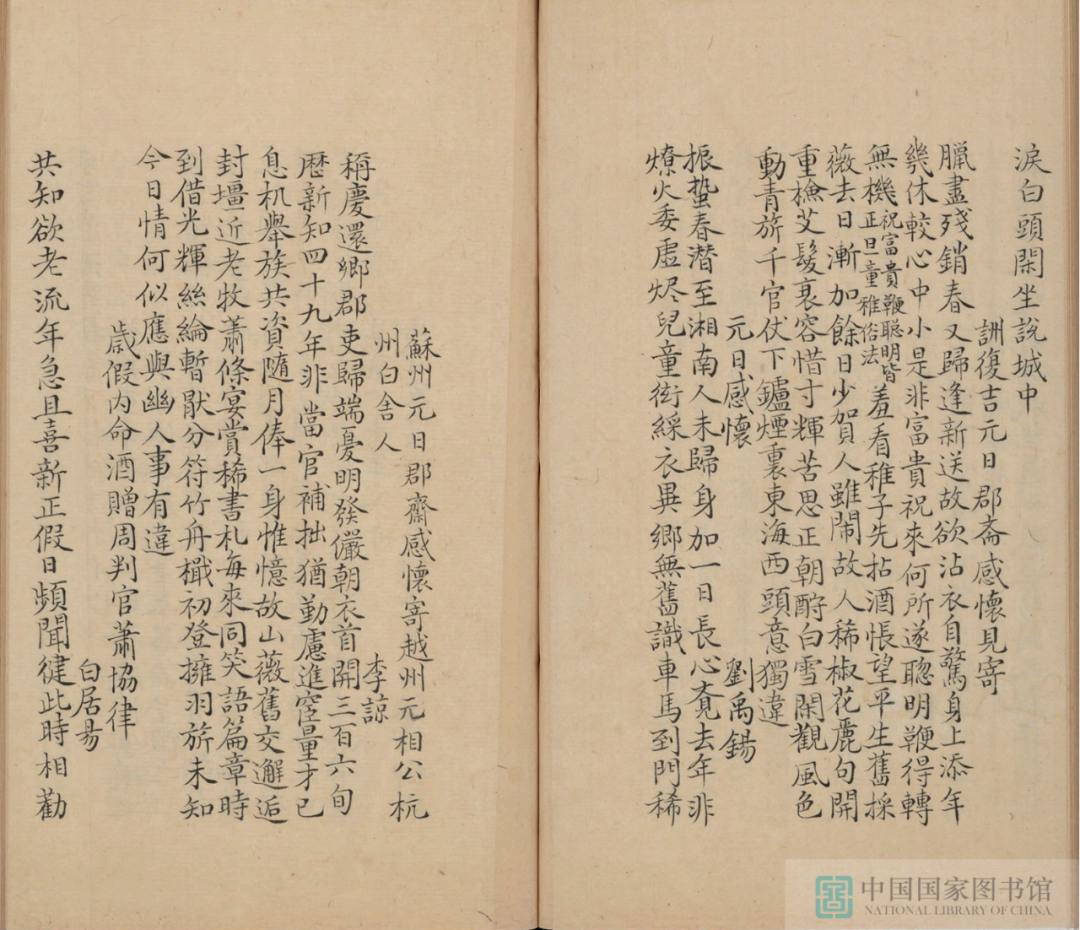 淚白頭閑坐說城中
詶復吉元日郡斎感懷見寄
臘盡殘銷春又歸逢新送故欲沾衣自驚身上添年
幾休較心中小是非富貴祝來何所遂聰明鞭得轉
無機祝富貴鞭聰明皆正旦童稚俗法羞看稚子先拈酒悵望平生舊採
薇去日漸加餘日少賀人雖鬧故人稀椒花麗句開
重檢艾髮衰容惜寸輝苦思正朝酧白雪閑觀風色
動青旂千官仗下鑪煙裏東海西頭意獨違
元日感懷 劉禹錫
振蟄春潛至湘南人未歸身加一日長心覔去年非
燎火委虛烬兒童衒綵衣異鄉無舊識車馬到門稀
蘇州元日郡齋感懷寄越州元相公杭
州白舍人 李諒
稱慶還鄉郡吏歸端憂明發儼朝衣首開三百六旬
歷新知四十九年非當官補拙猶勤慮進窒量才已
息机舉族共資隨月俸一身惟憶故山薇舊交邂逅
封壃近老牧蕭條宴賞稀書札每來同笑語篇章時
到借光輝絲綸暫猒分符竹舟檝初登擁羽旂未知
今日情何似應與幽人事有違
歲假內命酒贈周判官蕭協律
白居易
共知欲老流年急且喜新正假日頻聞健此時相勸
中国国家图书馆
NATIONAL LIBRARY OF CHINA